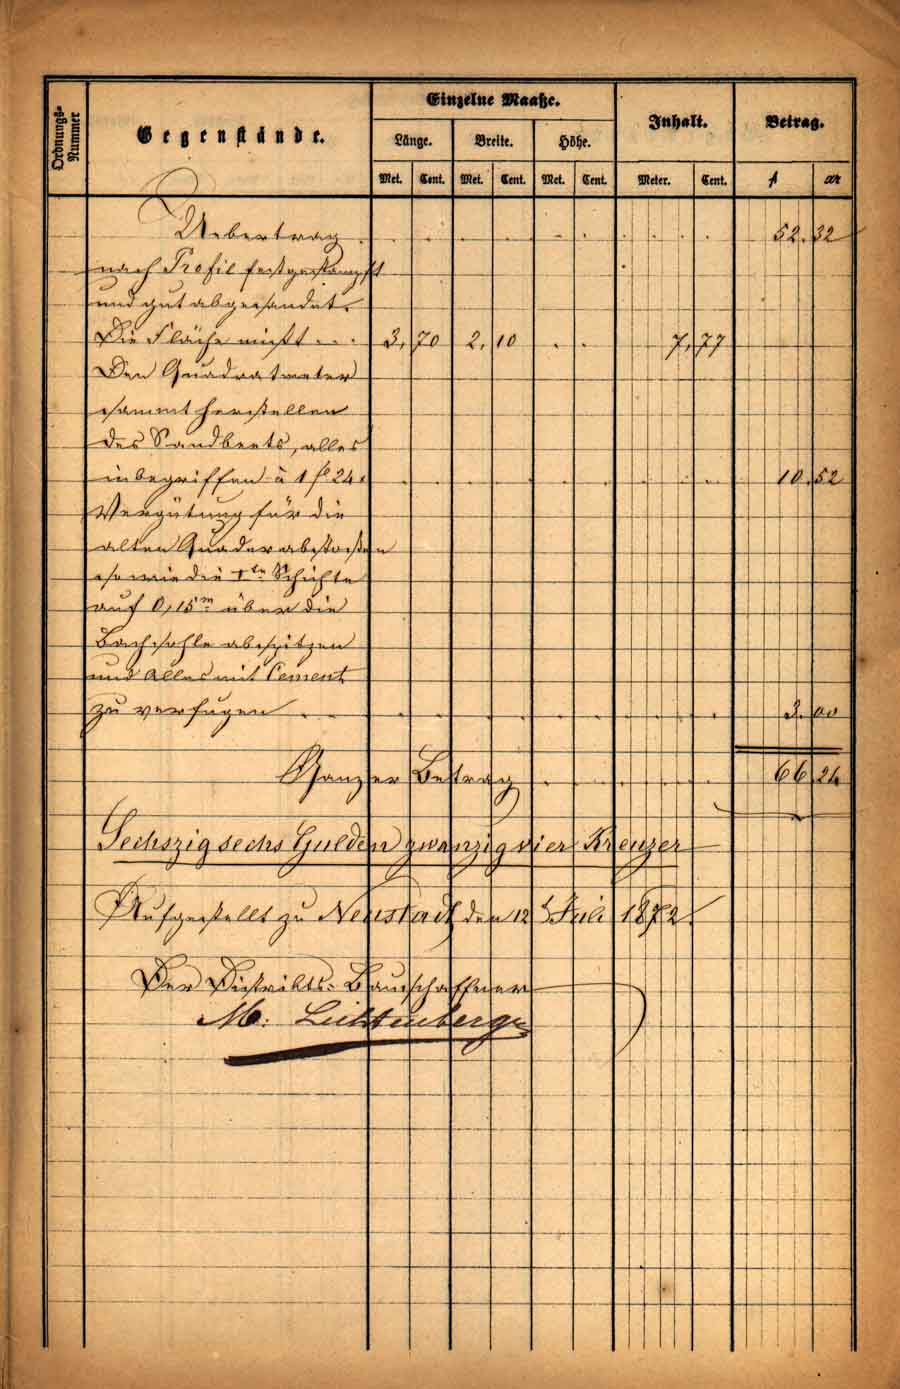 Ordnungs-Nummer
Gegenstände.
Einzelne Maaße.
Länge. Breite. Höhe.
Inhalt. Betrag.
Met. Cent. Met. Cent. Met. Cent. Meter. Cent. f xr
Uebertrag . . . . . . . . . 52. 32
nach Profil festgestampft
und gut abgesandet.
Die Fläche mißt . . . 3, 70 2, 10 . . 7, 77
Den Quadratmeter
sammt herstellen
des Sandbeets, alles
inbegriffen à 1 fl 24 . . . . . . . . 10. 52
Vergütung für die
alten Quader abstoßen
sowie die 1te Schichte
auf 0,15m über die
Bachsohle abspitzen
und Alles mit Cement
zu verfugen . . . . . . . . . 3. 00
Ganzer Betrag . . . . . 66. 24
Sechszig sechs Gulden zwanzig vier Kreuzer
Aufgestellt zu Neustadt, den 12 Juli 1872.
Der Distrikts-Bauschaffner
M. Lichtenberger